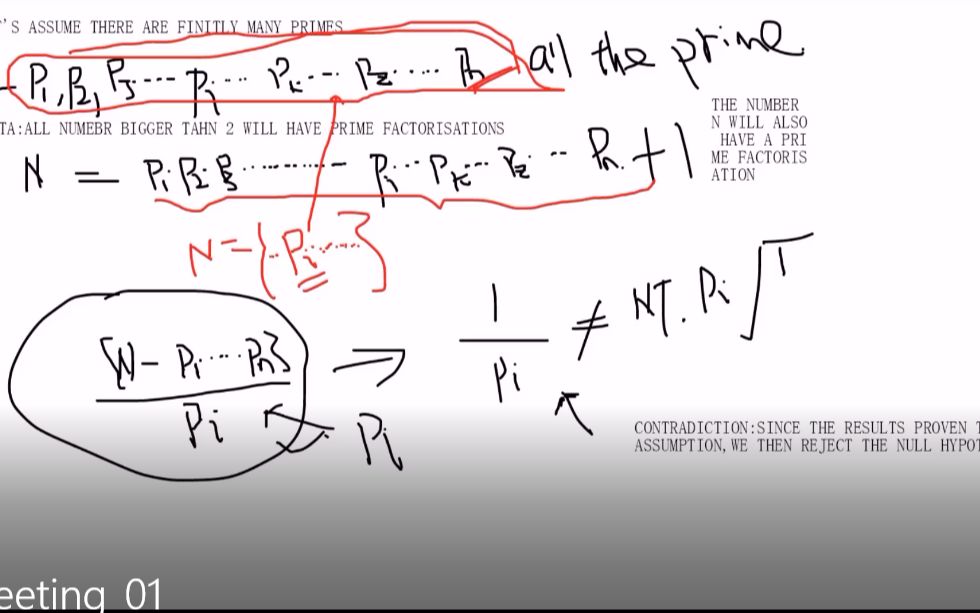 'S ASSUME THERE ARE FINITLY MANY PRIMES
P₁, P₂, P₃ ---- Pᵢ ... Pₖ --- P_z ..... Pₙ all the prime
TA:ALL NUMEBR BIGGER TAHN 2 WILL HAVE PRIME FACTORISATIONS
THE NUMBER
N WILL ALSO
HAVE A PRI
ME FACTORIS
ATION
N = P₁ P₂ P₃ ............ - Pᵢ ... Pₖ ... P_z .. Pₙ + 1
N = {.. Pᵢ ......}
{N - P₁ .... Pₙ} / Pᵢ → 1 / Pᵢ ≠ NT. Pᵢ
Pᵢ
CONTRADICTION:SINCE THE RESULTS PROVEN T
ASSUMPTION,WE THEN REJECT THE NULL HYPOT
eeting_01